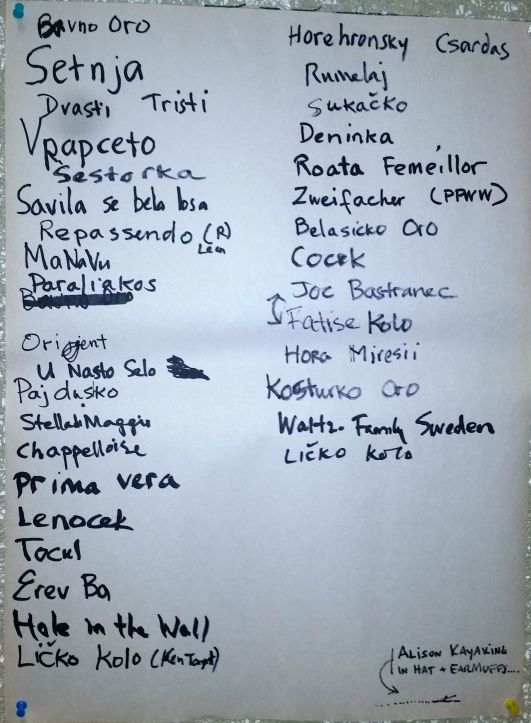 Bavno Oro
Setnja
Dvasti Tristi
Vrapceto
Šestorka
Savila se bela losa
Repassendo (R)
MaNaVu
Paraliakos
Orijent
U Nasto Selo
Pajdusko
Stella Maggiu
Chappelloise
Prima vera
Lenocek
Tocul
Erev Ba
Hole in the Wall
Ličko Kolo (Ken Taught)
Horehronsky Csardas
Rumelaj
Sukačko
Deninka
Roata Femeillor
Zweifacher (PPWW)
Belasicko Oro
Cocek
Joc Bastranec
Fatise Kolo
Hora Miresii
Kosturko Oro
Waltz - Family Sweden
Ličko Kolo
Alison Kayaking
in hat + earmuffs....